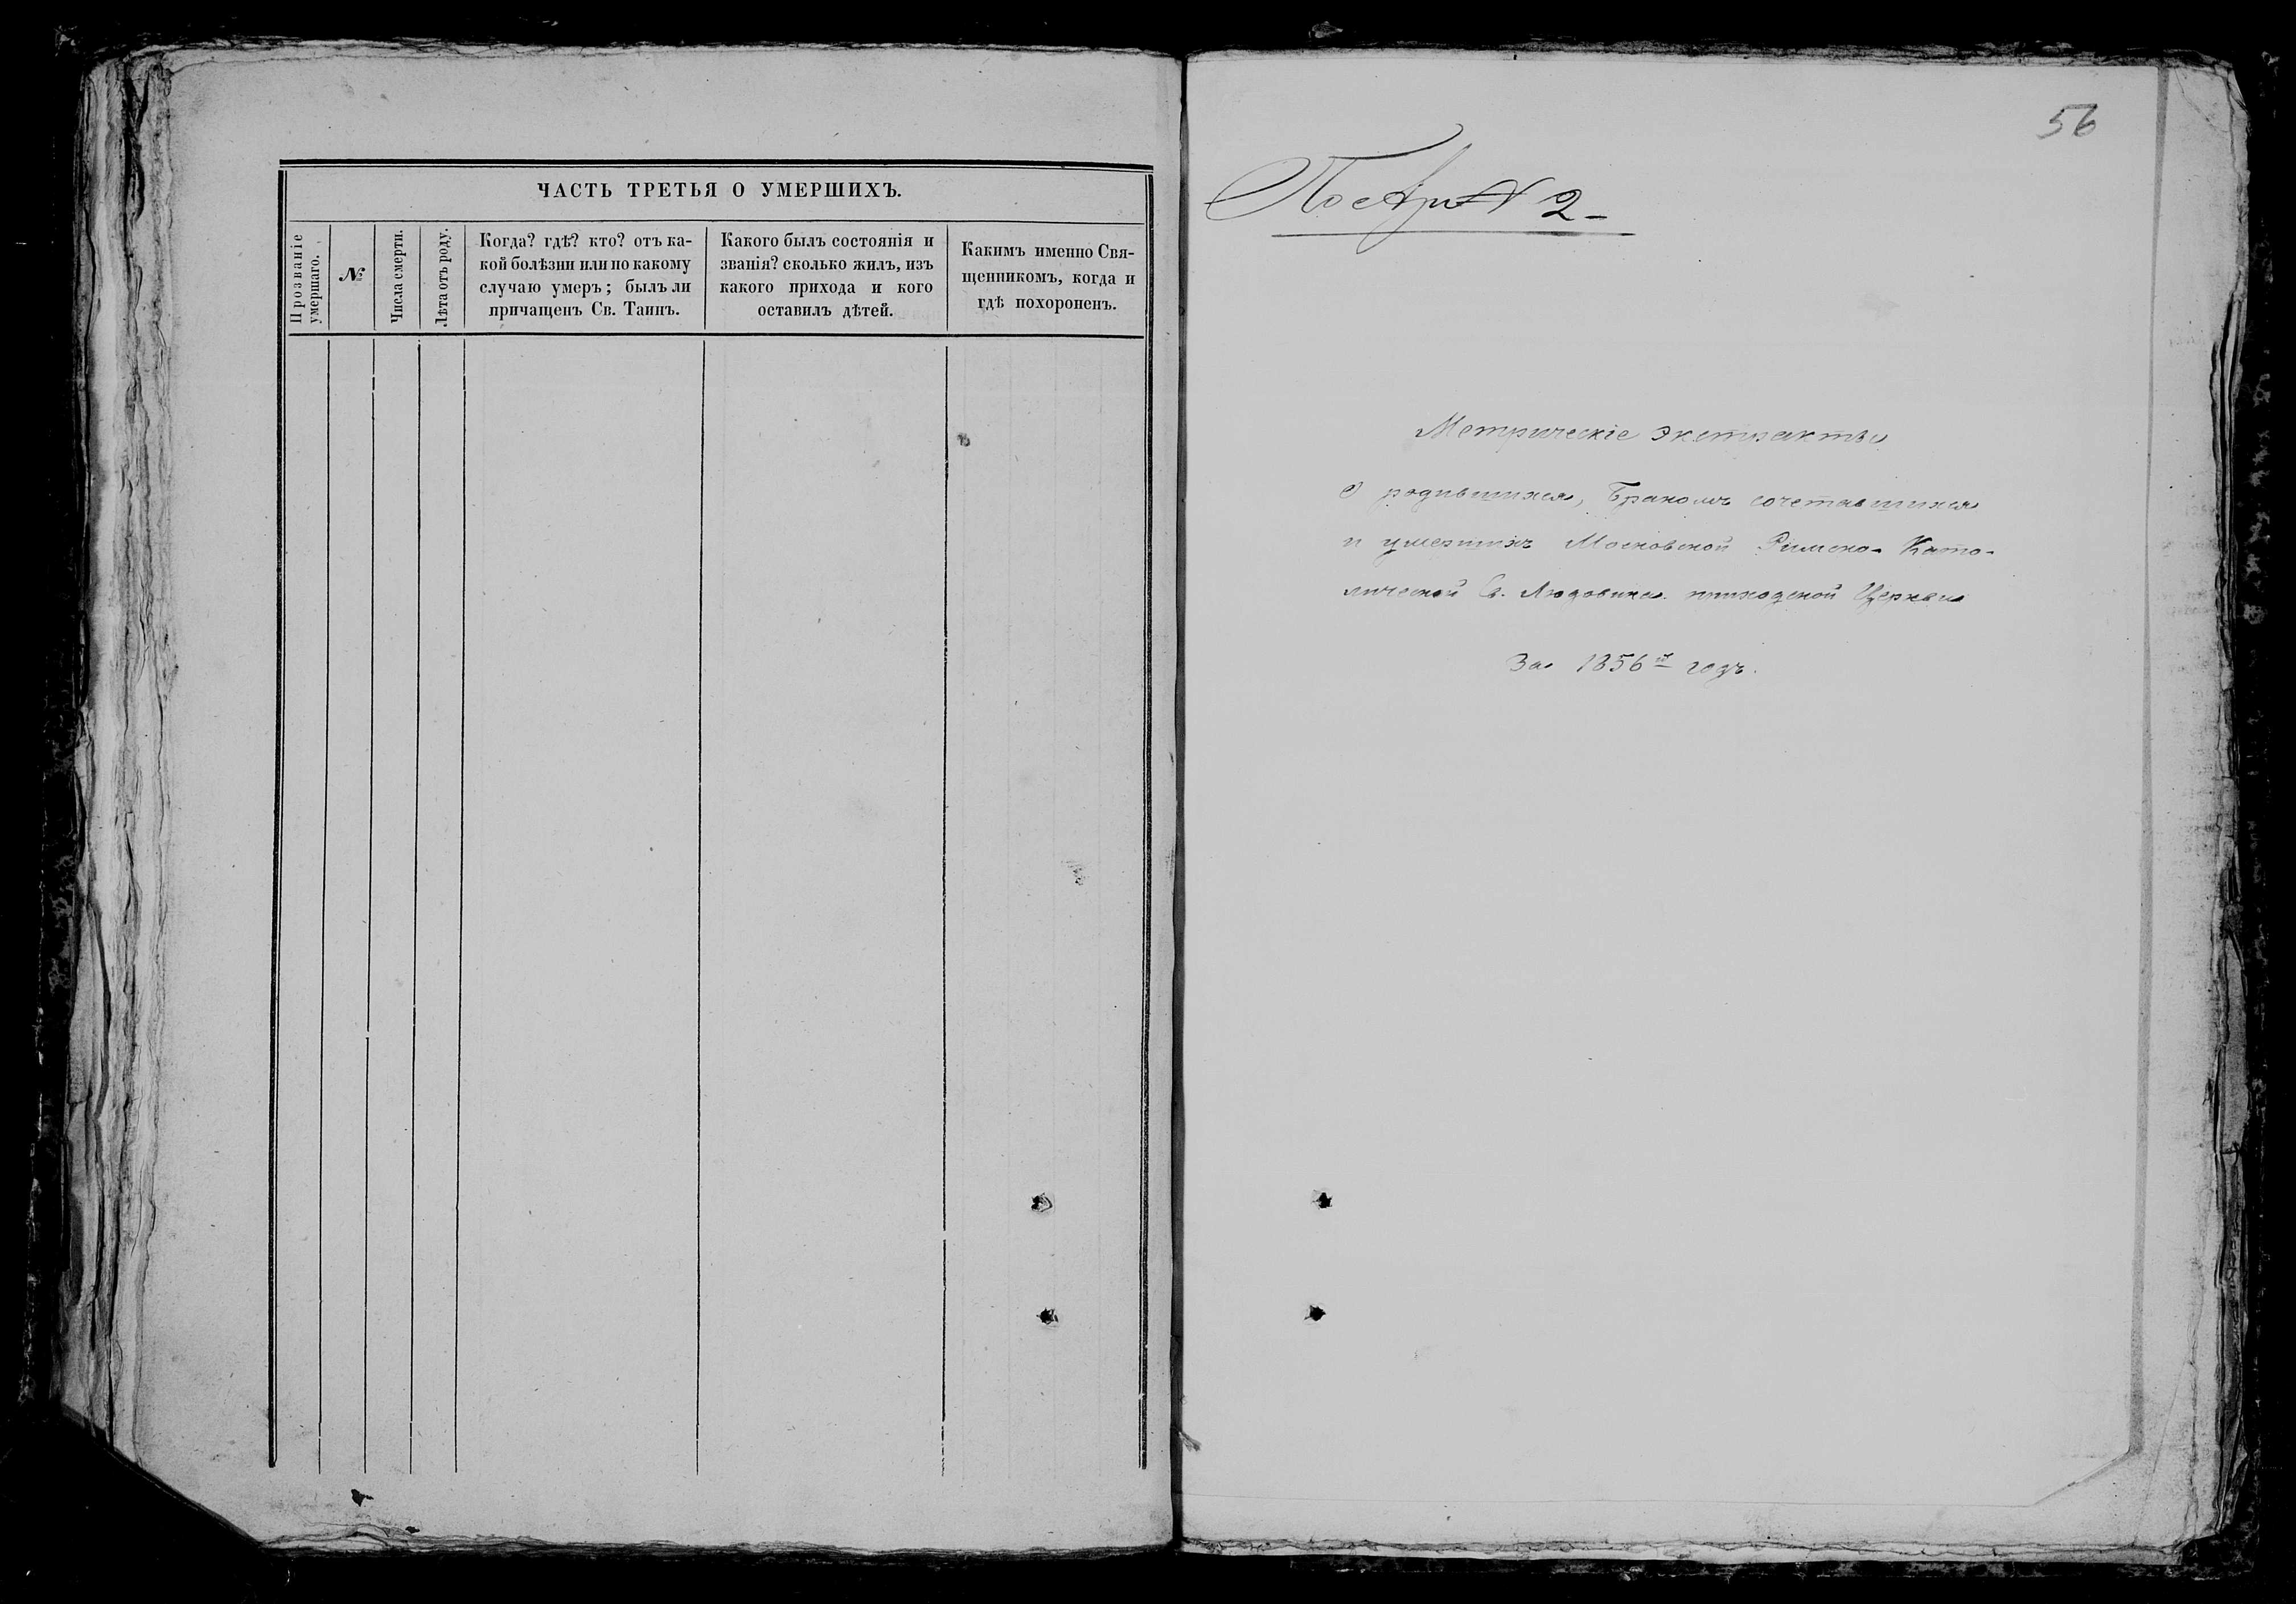 ЧАСТЬ ТРЕТЬЯ О УМЕРШИХЪ.
Прозваніе
умершаго.
№
Числа смерти.
Лѣта отъ роду.
Когда? гдѣ? кто? отъ ка-
кой болѣзни или по какому
случаю умеръ; былъ ли
причащенъ Св. Таинъ.
Какого былъ состоянія и
званія? сколько жилъ, изъ
какого прихода и кого
оставилъ дѣтей.
Какимъ именно Свя-
щенникомъ, когда и
гдѣ похороненъ.
56
По № 2
Метрическіе экстракты
О родившихся, Бракомъ сочетавшихся
и умершихъ Московской Римско-Като-
лической Св. Людовика приходской Церкви
За 1856й годъ.